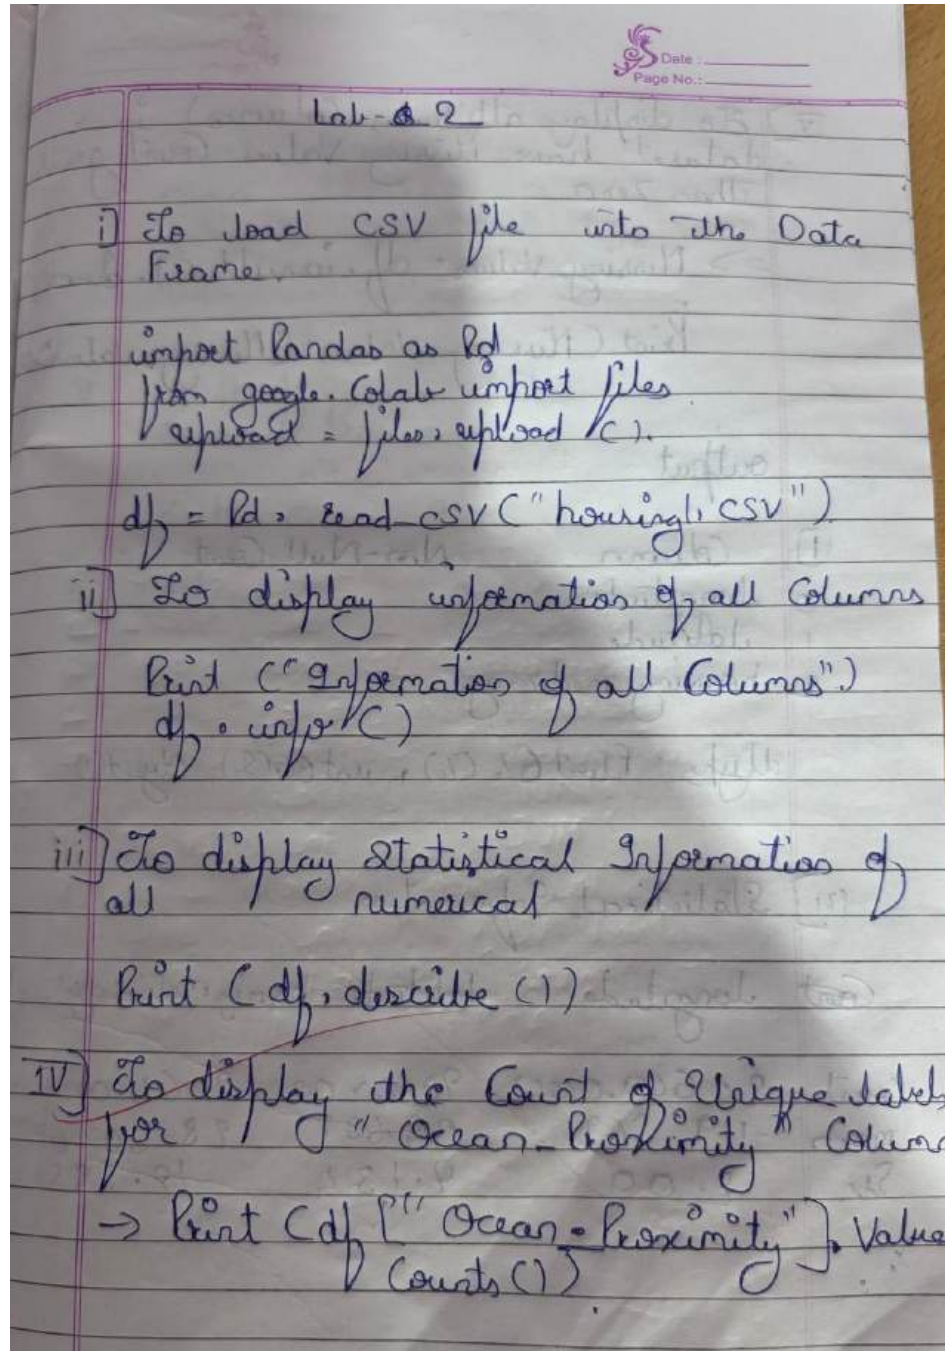 Date :
Page No.:
Lab - 2
i] To load CSV file into the Data
Frame.
import Pandas as Pd
from google. Colab import files
upload = files, upload ().
df = Pd, read_csv ("housing1, CSV")
ii] To display information of all Columns
Print ("Information of all Columns".)
df . info ()
iii] To display Statistical Information of
all numerical
Print (df, describe ())
IV] To display the Count of Unique labels
for " Ocean_Proximity" Column
→ Print (df [" Ocean_Proximity" ]. Value
Counts ())